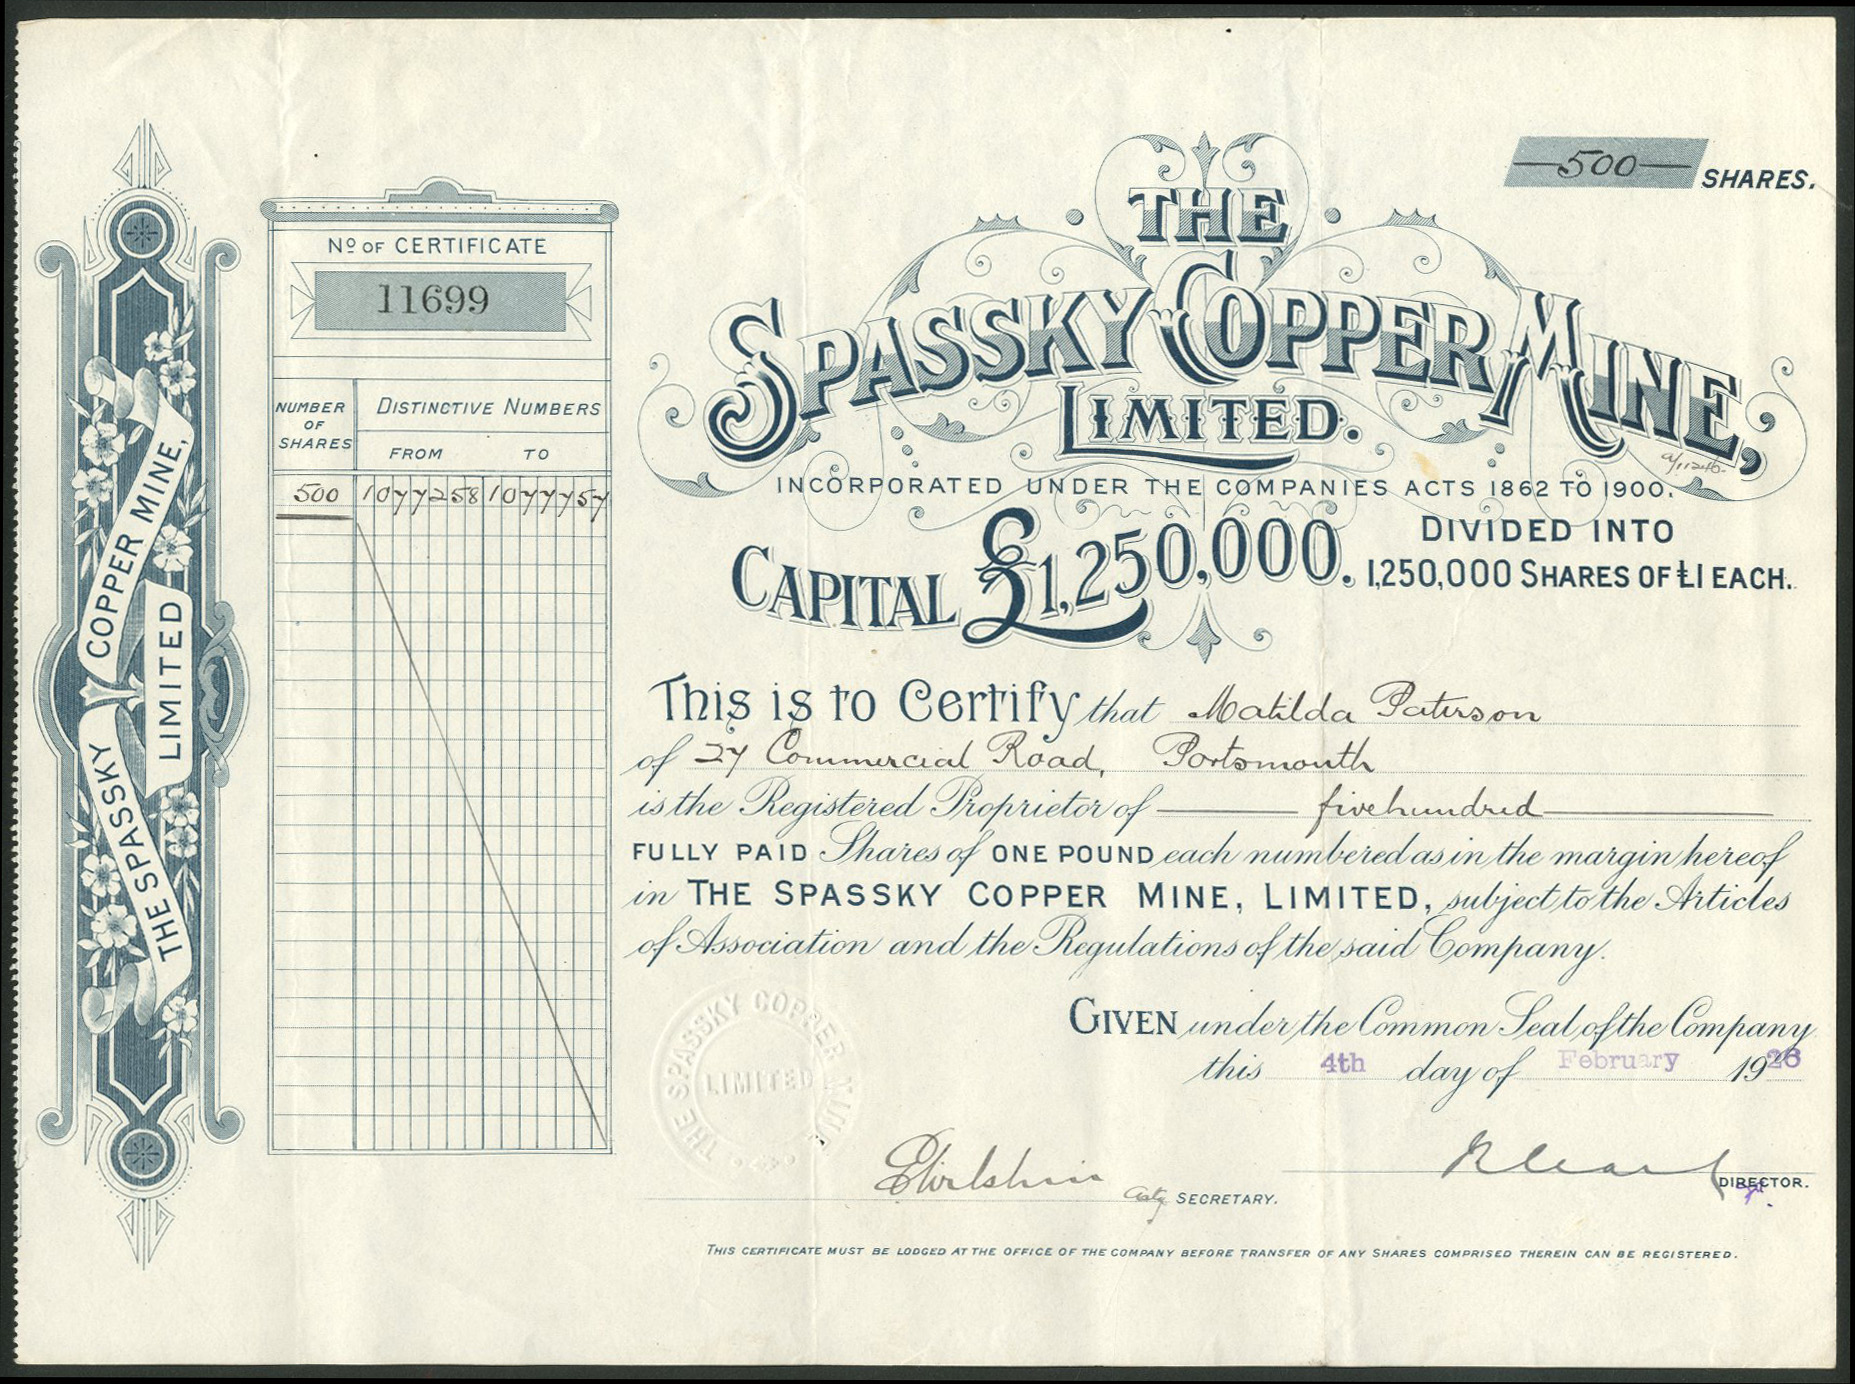 500 SHARES.
THE
SPASSKY COPPER MINE,
LIMITED.
INCORPORATED UNDER THE COMPANIES ACTS 1862 TO 1900.
CAPITAL £1,250,000. DIVIDED INTO
1,250,000 SHARES OF £1 EACH.
THE SPASSKY COPPER MINE,
LIMITED
No OF CERTIFICATE
11699
NUMBER OF SHARES DISTINCTIVE NUMBERS
FROM TO
500 1077258 1077757
This is to Certify that Matilda Paterson
of 27 Commercial Road, Portsmouth
is the Registered Proprietor of five hundred
FULLY PAID Shares of ONE POUND each numbered as in the margin hereof
in THE SPASSKY COPPER MINE, LIMITED, subject to the Articles
of Association and the Regulations of the said Company.
GIVEN under the Common Seal of the Company
this 4th day of February 1926
THE SPASSKY COPPER MINE
LIMITED
SECRETARY.
DIRECTOR.
THIS CERTIFICATE MUST BE LODGED AT THE OFFICE OF THE COMPANY BEFORE TRANSFER OF ANY SHARES COMPRISED THEREIN CAN BE REGISTERED.